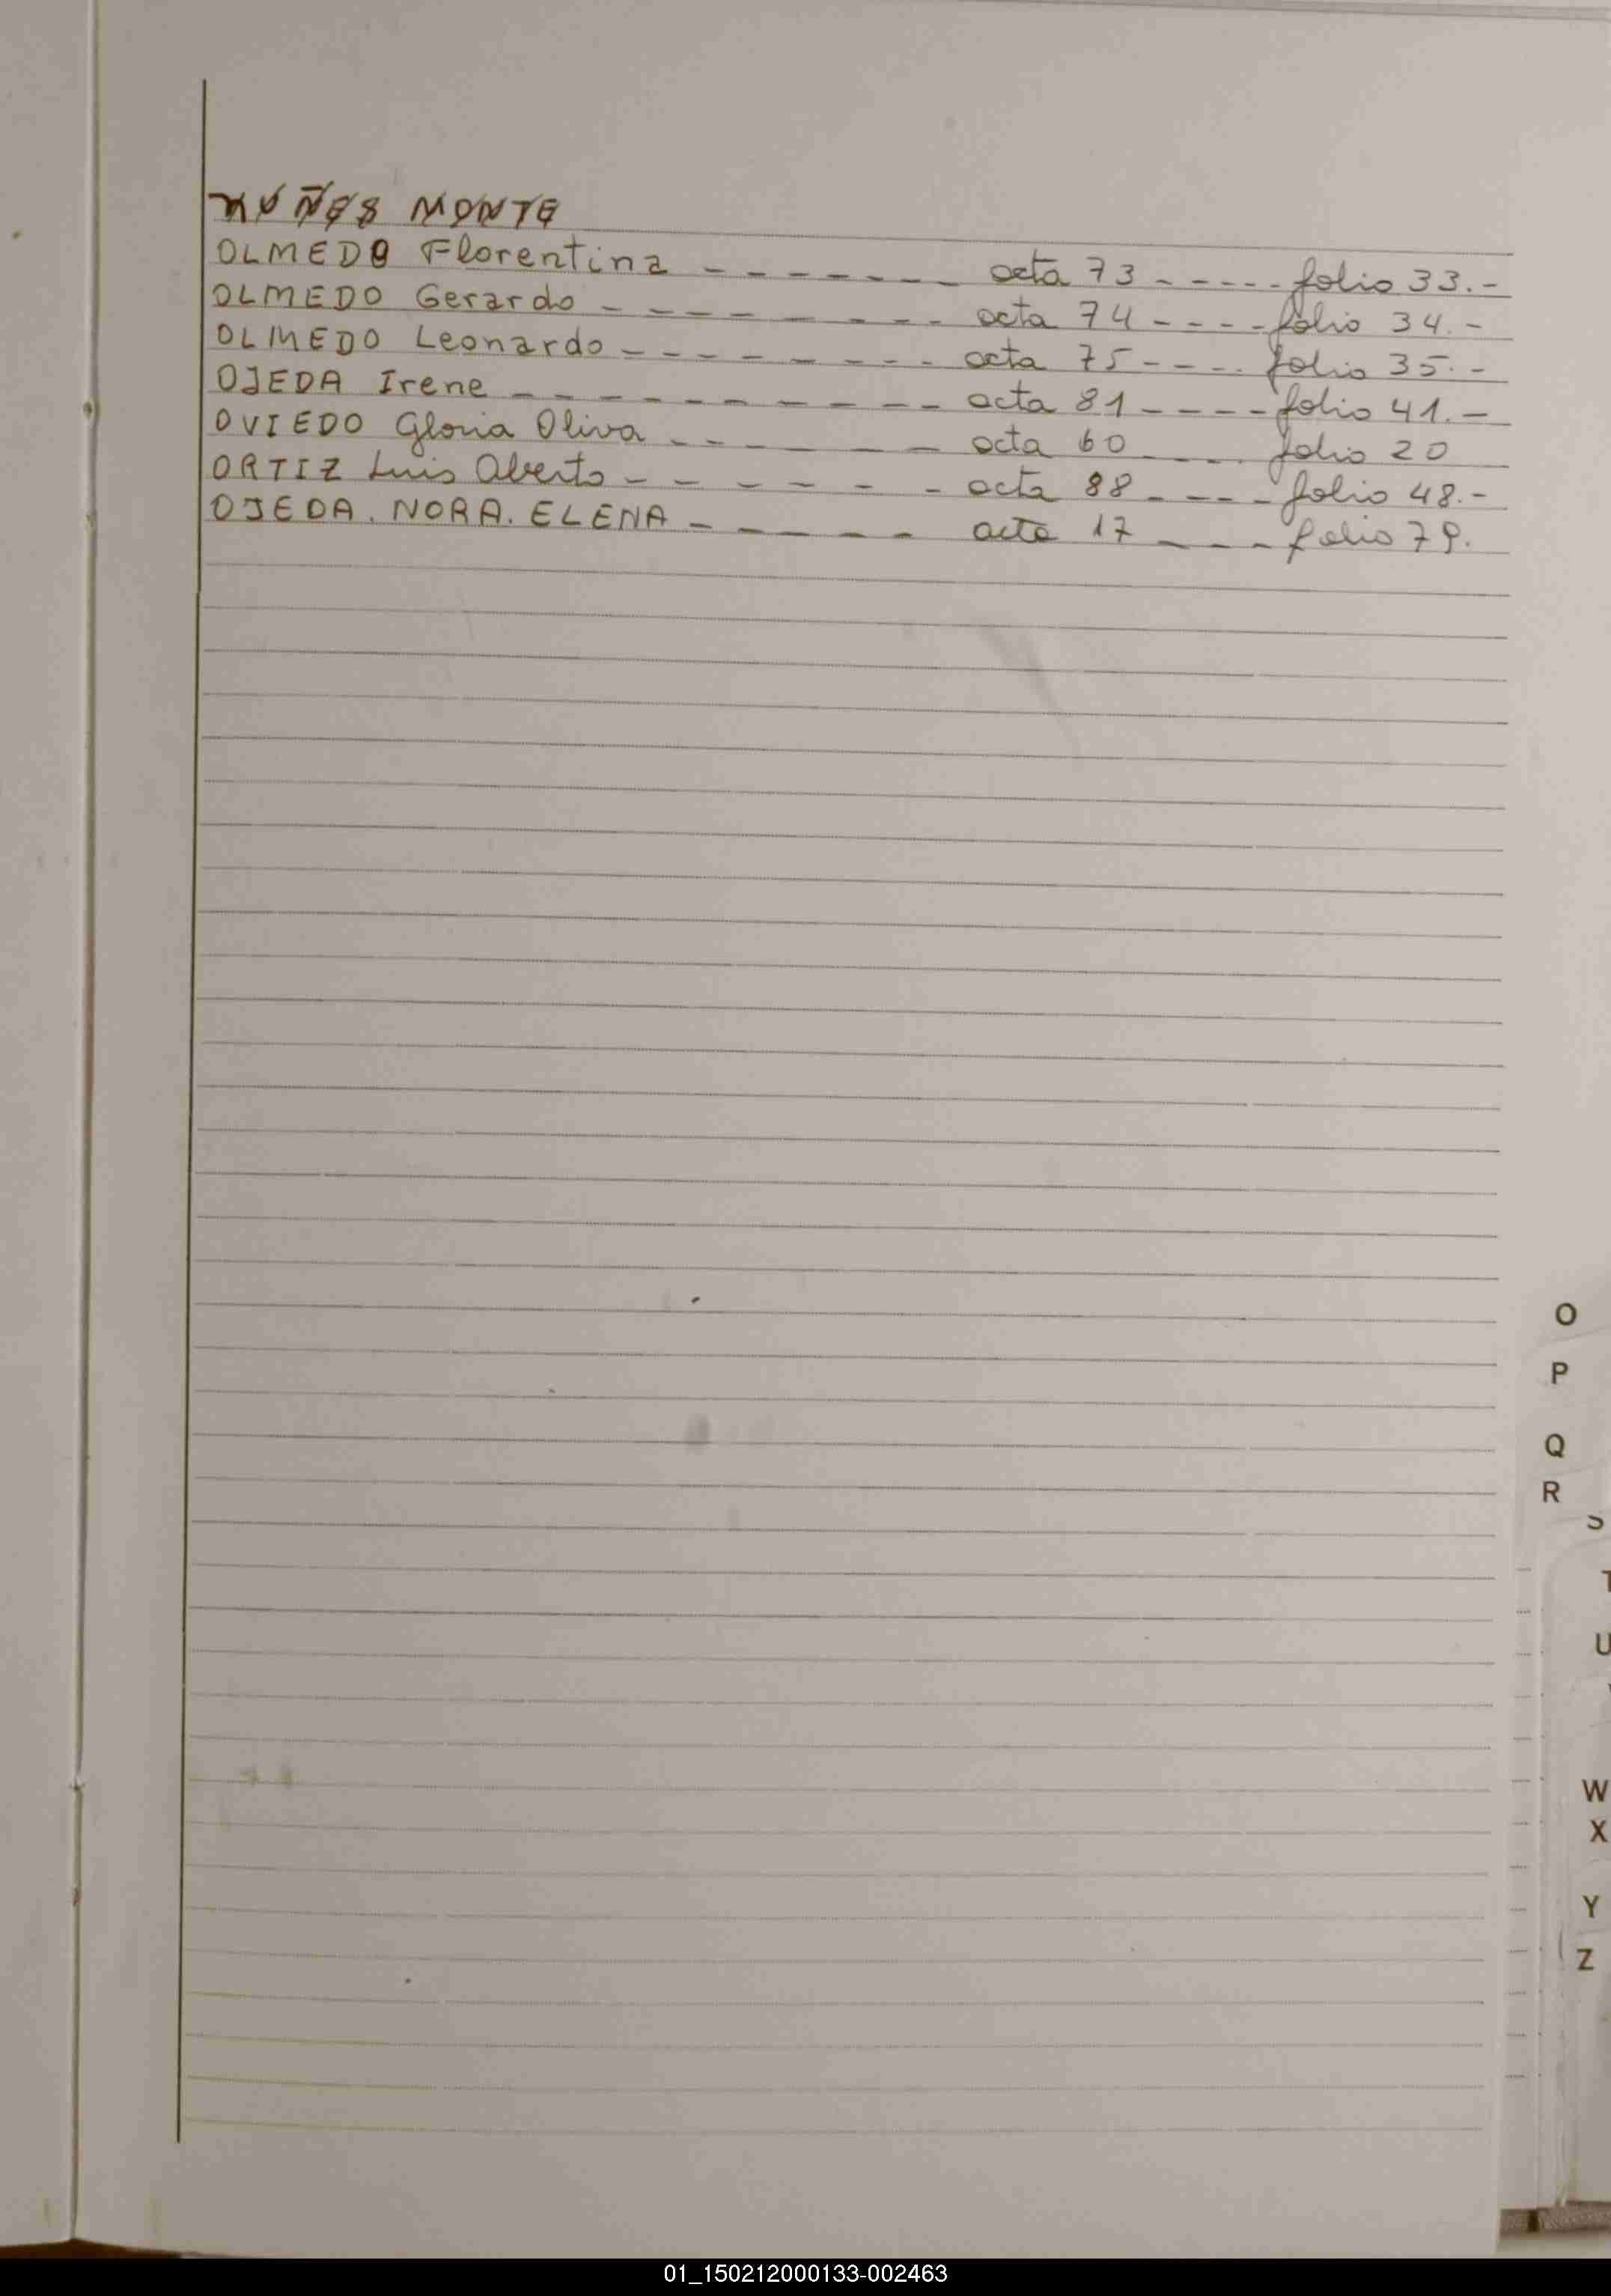 MUÑES MONTE
OLMEDO Florentina - - - - - - - acta 73 - - - - - folio 33.-
OLMEDO Gerardo - - - - - - - - - acta 74 - - - - folio 34.-
OLMEDO Leonardo - - - - - - - - acta 75 - - - - folio 35.-
OJEDA Irene - - - - - - - - - - - acta 81 - - - - folio 41.-
OVIEDO Gloria Oliva - - - - - - acta 60 - - - - folio 20
ORTIZ Luis Alberto - - - - - - - acta 88 - - - - folio 48.-
OJEDA. NORA. ELENA - - - - - - acta 17 - - - - folio 79.
O
P
Q
R
S
T
U
W
X
Y
Z
01_150212000133-002463